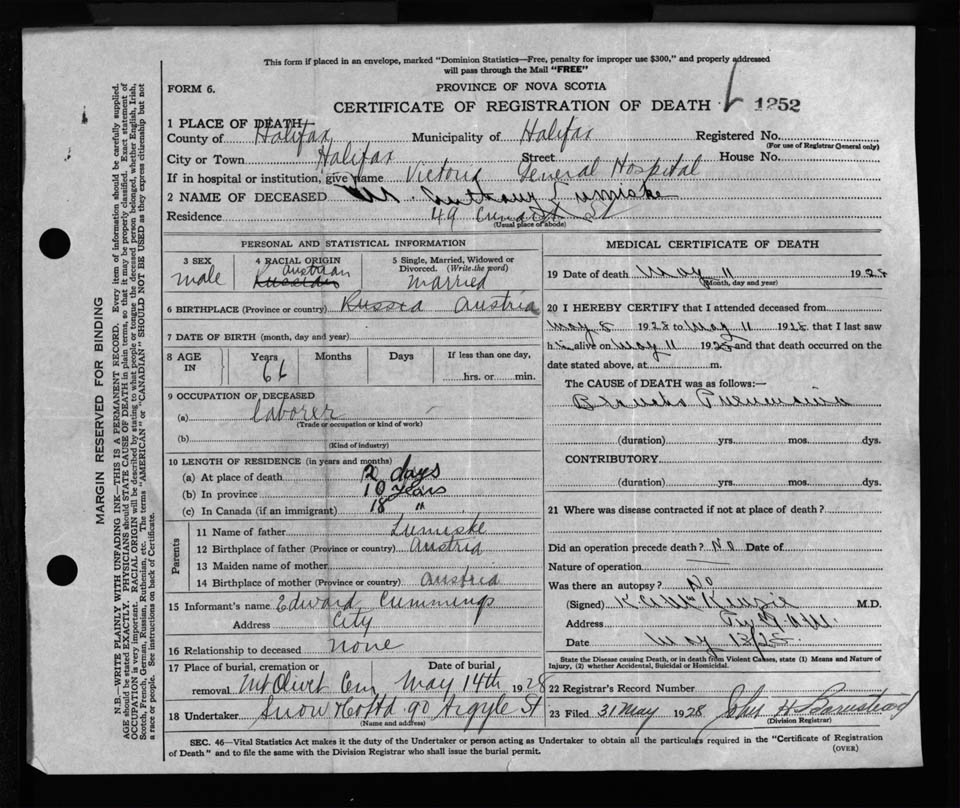 This form if placed in an envelope, marked "Dominion Statistics—Free, penalty for improper use $300," and properly addressed
will pass through the Mail "FREE"
FORM 6.
PROVINCE OF NOVA SCOTIA
CERTIFICATE OF REGISTRATION OF DEATH 1252
1 PLACE OF DEATH
County of Halifax Municipality of Halifax Registered No.
(For use of Registrar General only)
City or Town Halifax Street House No.
If in hospital or institution, give name Victoria General Hospital
2 NAME OF DECEASED Mr. Anthony Lumiske
Residence 49 Cunard St
(Usual place of abode)
PERSONAL AND STATISTICAL INFORMATION
3 SEX
male
4 RACIAL ORIGIN
Austrian
Russian
5 Single, Married, Widowed or
Divorced. (Write the word)
Married
6 BIRTHPLACE (Province or country) Russia Austria
7 DATE OF BIRTH (month, day and year)
8 AGE IN Years Months Days If less than one day,
66 hrs. or min.
9 OCCUPATION OF DECEASED
(a) laborer
(Trade or occupation or kind of work)
(b)
(Kind of industry)
10 LENGTH OF RESIDENCE (in years and months)
(a) At place of death days
(b) In province 10 years
(c) In Canada (if an immigrant) 18 "
Parents
11 Name of father Lumiske
12 Birthplace of father (Province or country) Austria
13 Maiden name of mother
14 Birthplace of mother (Province or country) Austria
15 Informant's name Edward Cummings
Address City
16 Relationship to deceased none
17 Place of burial, cremation or Date of burial
removal Mt Olivet Cem May 14th 1928
18 Undertaker Snow & Co Ltd 90 Argyle St
(Name and address)
MEDICAL CERTIFICATE OF DEATH
19 Date of death May 11 1928
(Month, day and year)
20 I HEREBY CERTIFY that I attended deceased from
May 8 1928 to May 11 1928, that I last saw
him alive on May 11 1928 and that death occurred on the
date stated above, at m.
The CAUSE of DEATH was as follows:—
Broncho Pneumonia
(duration) yrs. mos. dys.
CONTRIBUTORY
(duration) yrs. mos. dys.
21 Where was disease contracted if not at place of death?
Did an operation precede death? No Date of
Nature of operation
Was there an autopsy? No
(Signed) McKenzie M.D.
Address
Date May 12/28
State the Disease causing Death, or in death from Violent Causes, state (1) Means and Nature of
Injury, (2) whether Accidental, Suicidal or Homicidal.
22 Registrar's Record Number
23 Filed 31 May 1928 John H Barnstead
(Division Registrar)
SEC. 46—Vital Statistics Act makes it the duty of the Undertaker or person acting as Undertaker to obtain all the particulars required in the "Certificate of Registration
of Death" and to file the same with the Division Registrar who shall issue the burial permit.
(OVER)
MARGIN RESERVED FOR BINDING
N.B.—WRITE PLAINLY WITH UNFADING INK—THIS IS A PERMANENT RECORD. Every item of information should be carefully supplied.
AGE should be stated EXACTLY. PHYSICIANS should STATE CAUSE OF DEATH in plain terms, so that it may be properly classified. Exact statement of
OCCUPATION is very important. RACIAL ORIGIN will be described by stating to what people or tongue the deceased person belonged, whether English, Irish,
Scotch, French, German, Russian, Ruthenian, etc. The terms "AMERICAN" or "CANADIAN" SHOULD NOT BE USED as they express citizenship but not
a race or people. See instructions on back of Certificate.